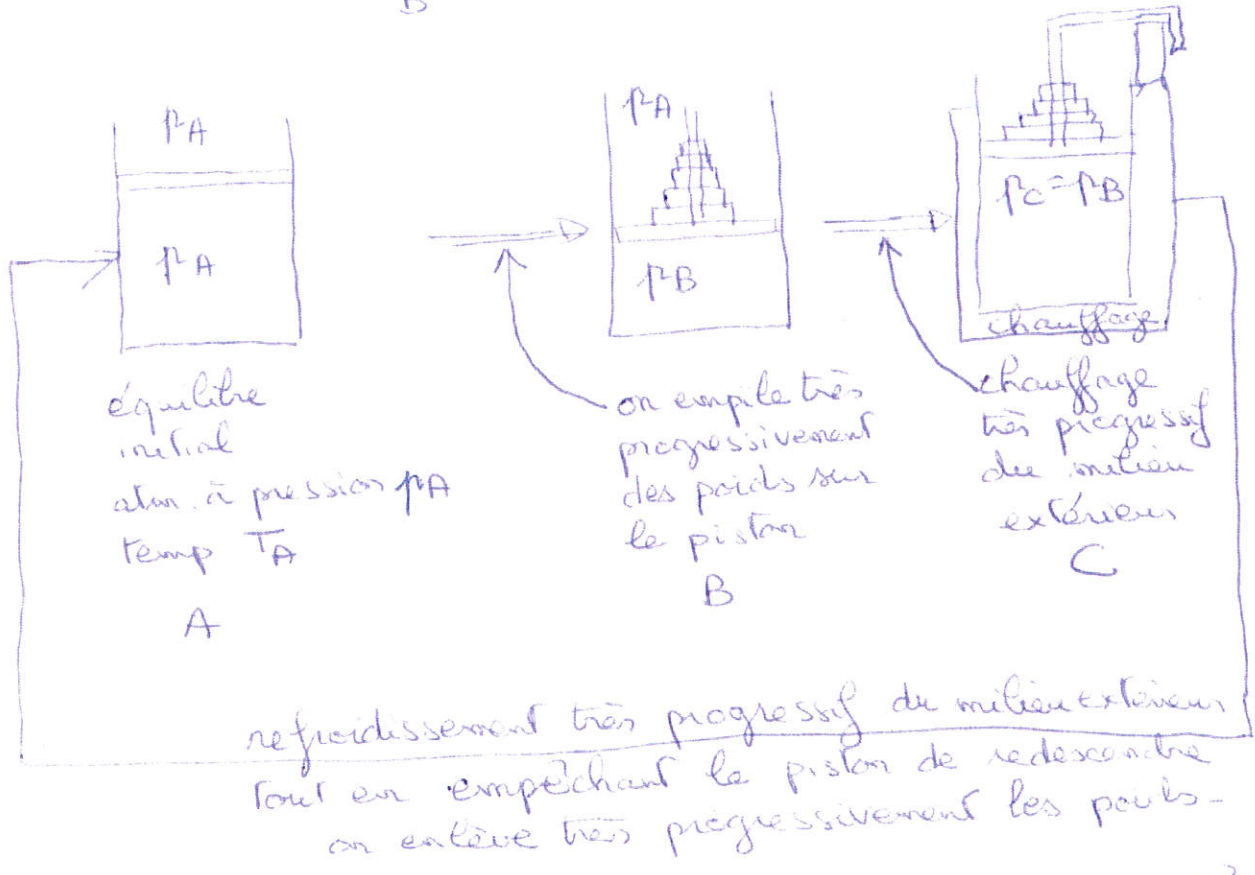 B
pA
pA
pA
pB
pC = pB
chauffage
équilibre
initial
atm. à pression pA
temp TA
A
on empile très
progressivement
des poids sur
le piston
B
chauffage
très progressif
du milieu
extérieur
C
refroidissement très progressif du milieu extérieur
tout en empêchant le piston de redescendre
on enlève très progressivement les poids-